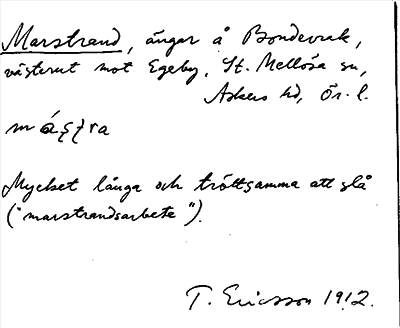 Marstrand, ängar å Bondevrak,
västerut mot Egeby, St. Mellösa sn,
Askers hd, Ör. l.
Mycket långa och tröttsamma att slå
("marstrandsarbete").
T. Ericsson 1912.